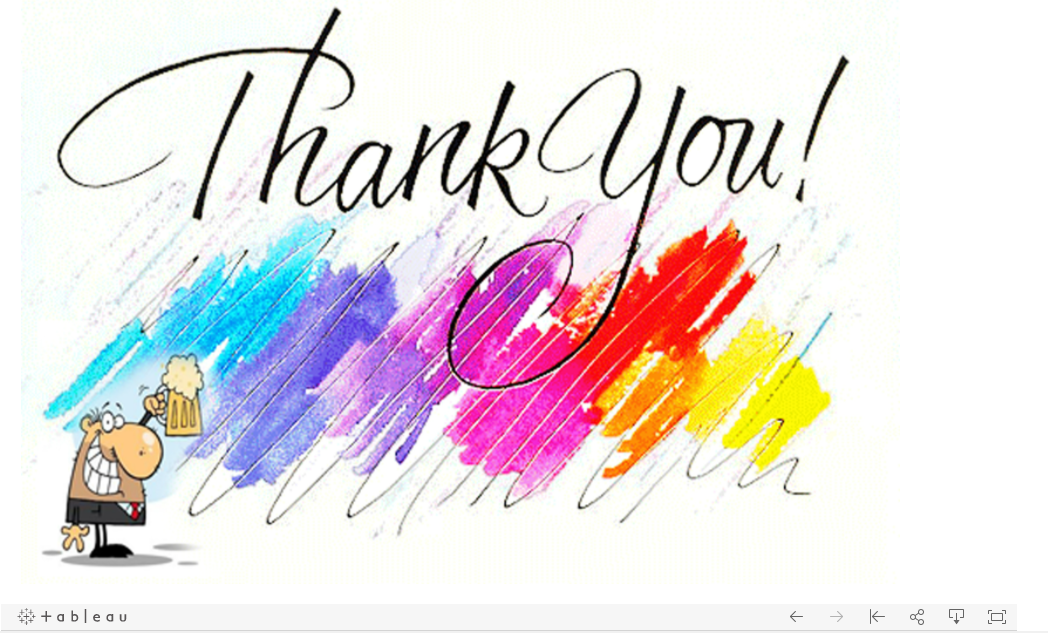 Thank You!
+ableau